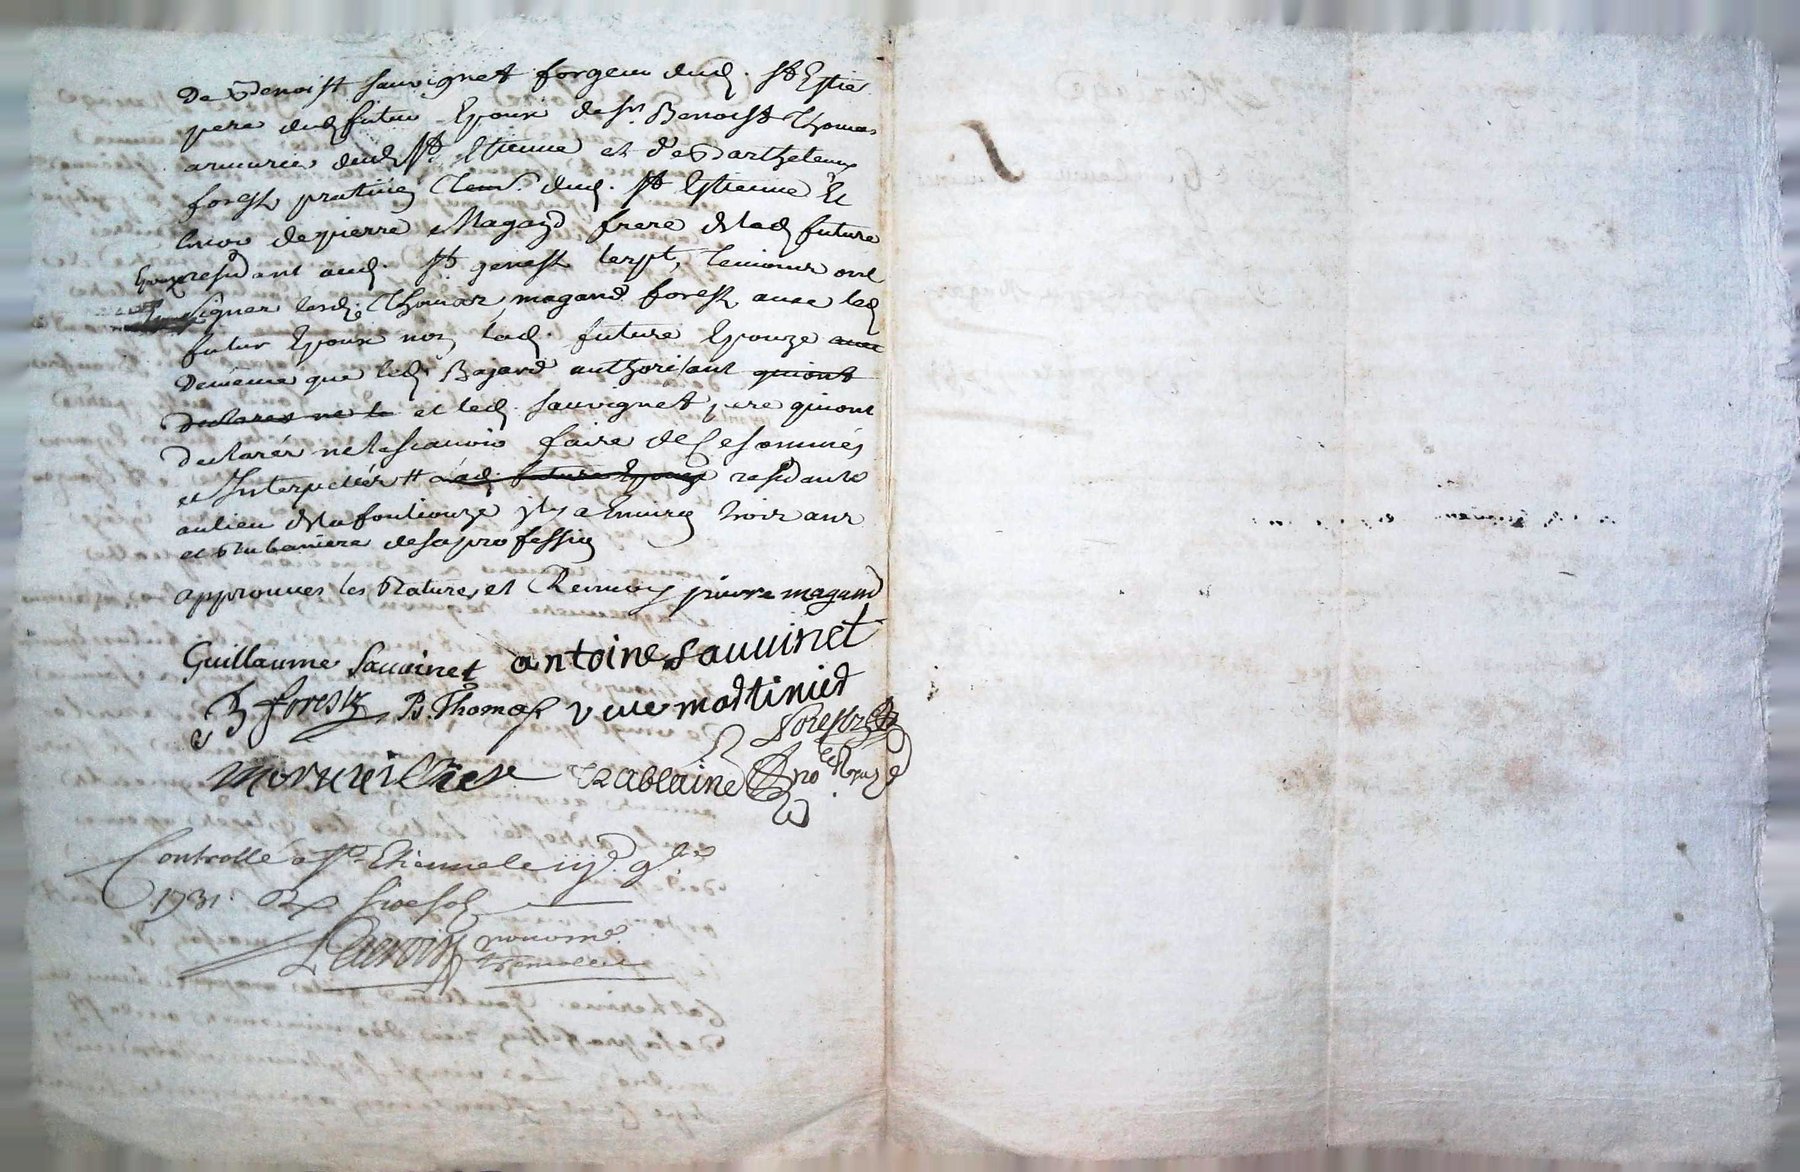 De Benoist Sauvignet forgeur dud. St Estie.
pere dud futur Epoux de sr. Benoist Thomas
armurier dud St Etienne et de Barthelemy
forest praticien dud. St Estienne Et
Encor de pierre Magand frere de lad future
Epouze residant aud. St genest lerpt, temoins ont
signer lesd. Thomas, magand forest avec led
futur Epoux non lad. future Epouze avec
demême que led. Bajard authorisant qui ont
declarer ne le et led. Sauvignet pere qui ont
declarér ne le scavoir faire de ce sommés
et Interpellér # Lad. future Epouze residante
au lieu de la fouliouze il y a Environ trois ans
et Rubaniere de sa profession
approuvés les Ratures, et Renvoy pierre magand
Guillaume Sauvinet antoine Sauvinet
B forest B. Thomas veue martinier
forest
Rablaine no Roya
Controllé a St. Etienne le iije. 9bre
1731. Rx six sol
Lacroix